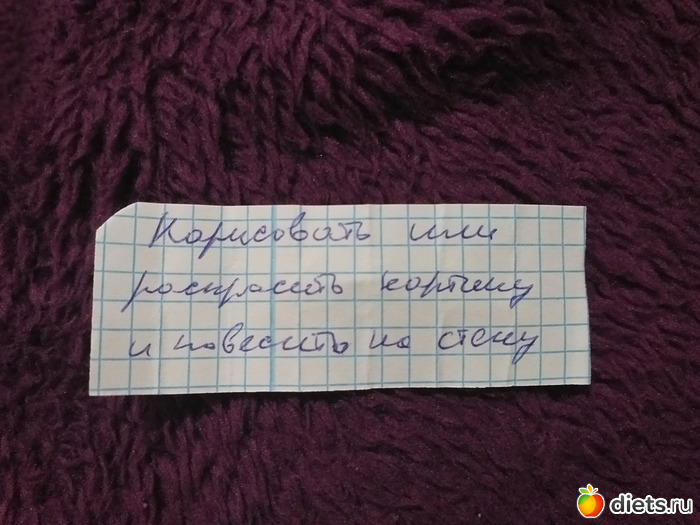 Нарисовать или
раскрасить картину
и повесить на стену
diets.ru